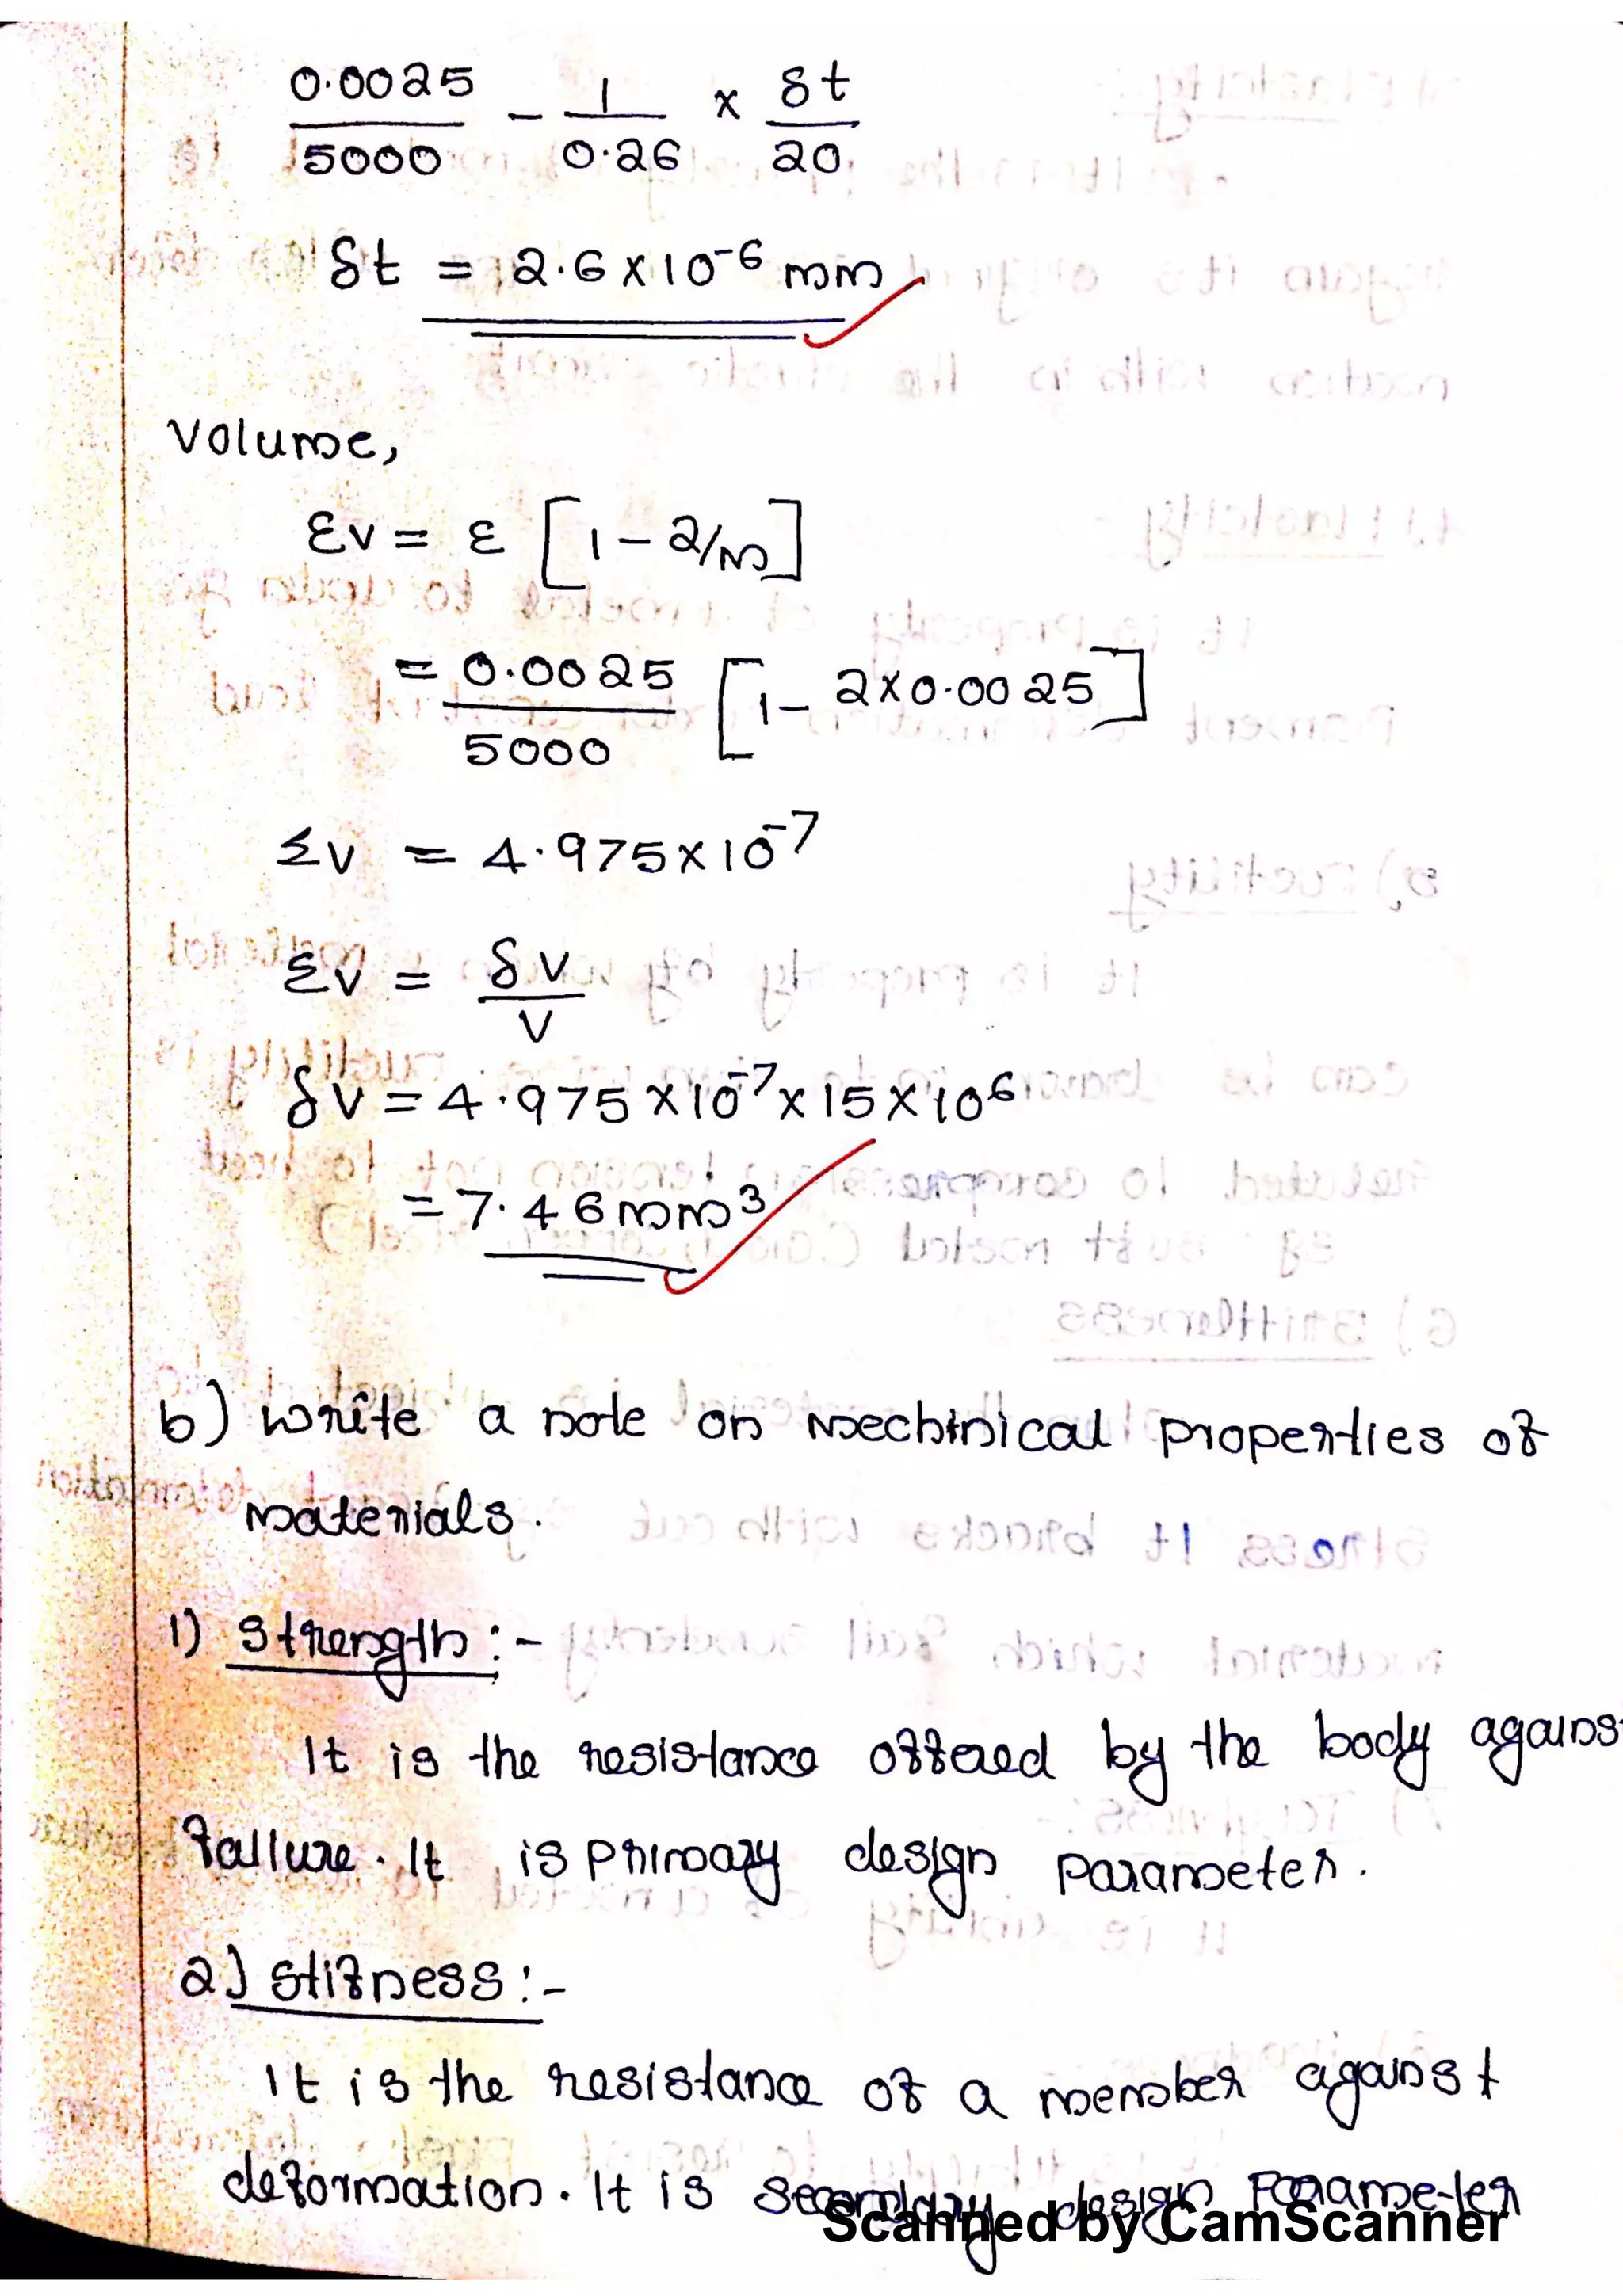 0.0025/5000 - 1/0.26 x δt/20
δt = 2.6x10⁻⁶ mm
Volume,
Ɛv = ε [1 - 2/m]
= 0.0025/5000 [1 - 2x0.0025]
Σv = 4.975x10⁻⁷
Σv = δv/v
δv = 4.975x10⁻⁷x15x10⁶
= 7.46mm³
b) Write a note on Mechinical properties of
Materials.
1) Strength :-
It is the resistance offered by the body agains
failure. It is primary design parameter.
2) Stifness :-
It is the resistance of a member against
deformation. It is secondary design Parameter
Scanned by CamScanner